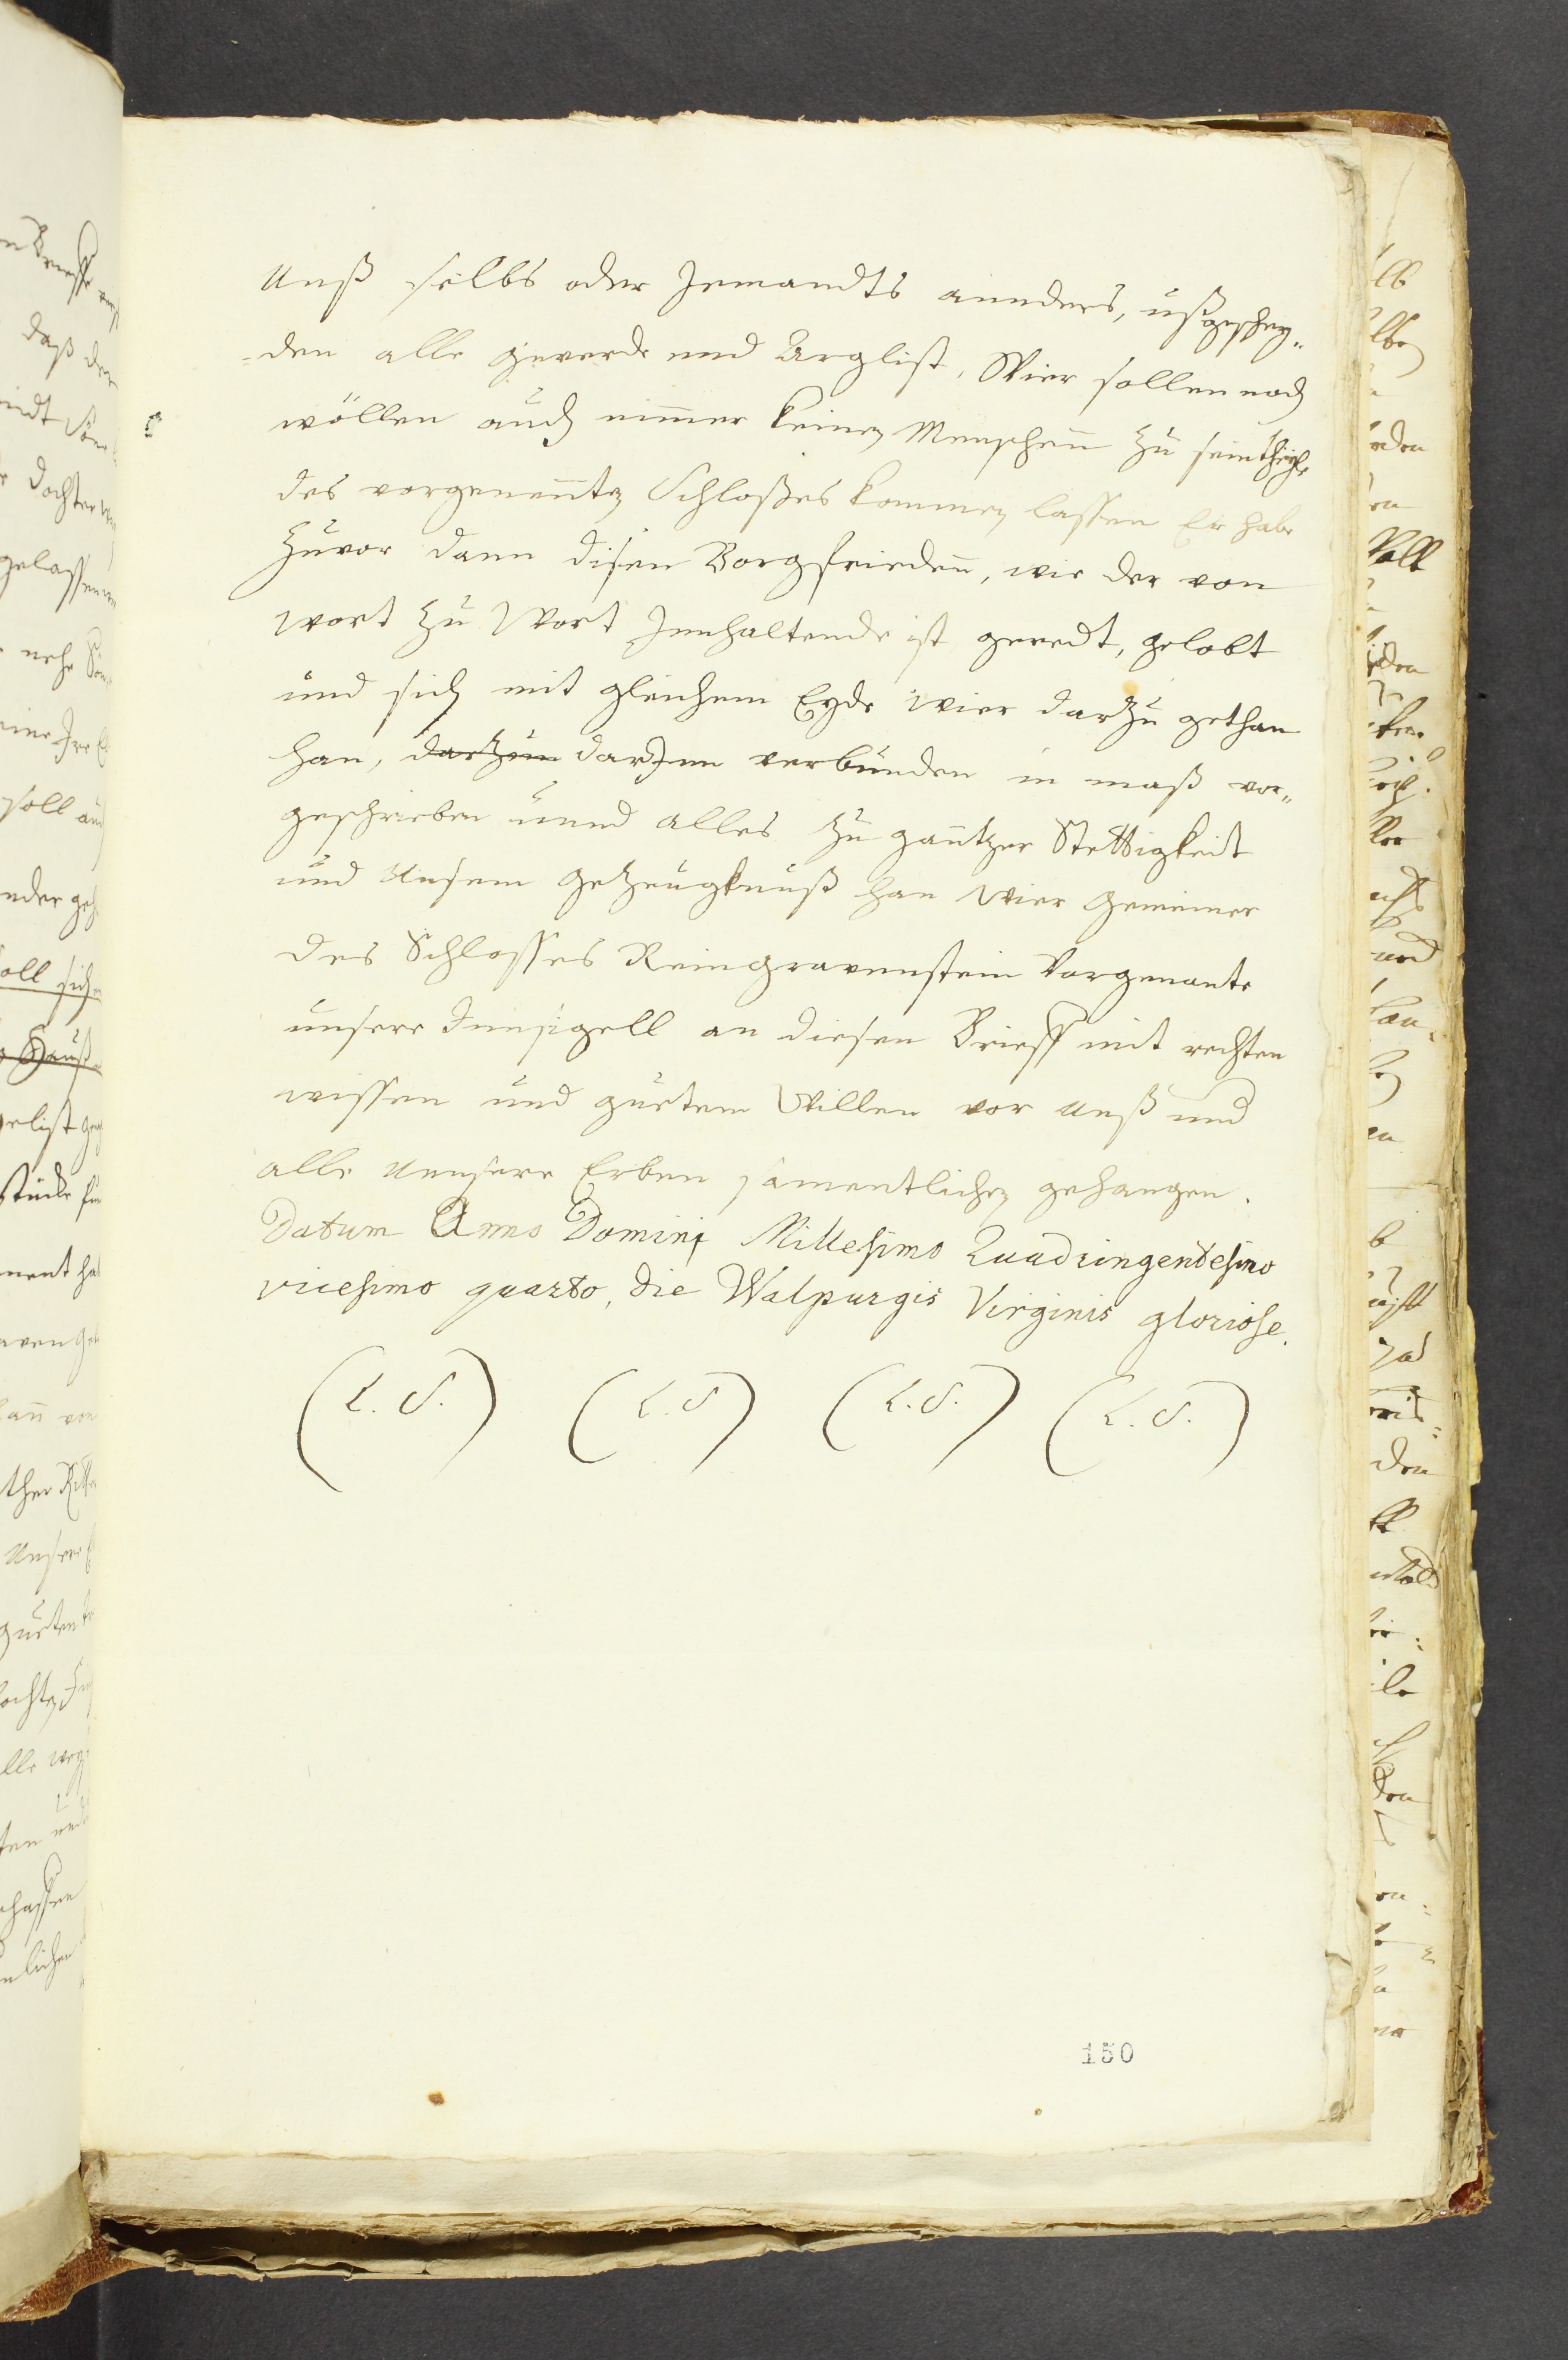 Unß selbs oder Jemandts annders, ußgeschey„
den alle geverde und Arglist, Wier sollen noch
wöllen auch nimmer keinen Menschenn zu seim theyle
des vorgenentten Schloßes kommen lassen Er habe
zuvor dann disen Borgfriedenn, wie der von
wort zu Wort Innhaltende ist geredt, gelobt
und sich mit gleichem Eyde wier darzu gethan
han, darzum darJnn verbunden in maß vor„
geschrieben unnd alles zu ganntzer Stettigkeit
und Unsem getzeugknuß han Wier gemeiner
des Schlosses Reingravenstein Vorgenante
unsere Innsigell an diesen Brieff mit rechten
wissen und gurtem Willen vor Unß und
alle Unnsere Erben samentlichen gehangen.
Datum Anno Domini Millesimo Quadringentesimo
vicesimo quarto, die Walpurgis Virginis gloriose.
(L.S.) (L.S) (L.S.) (L.S.)
150